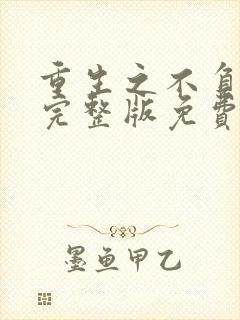 重生之不负
完整版免費
墨鱼甲乙